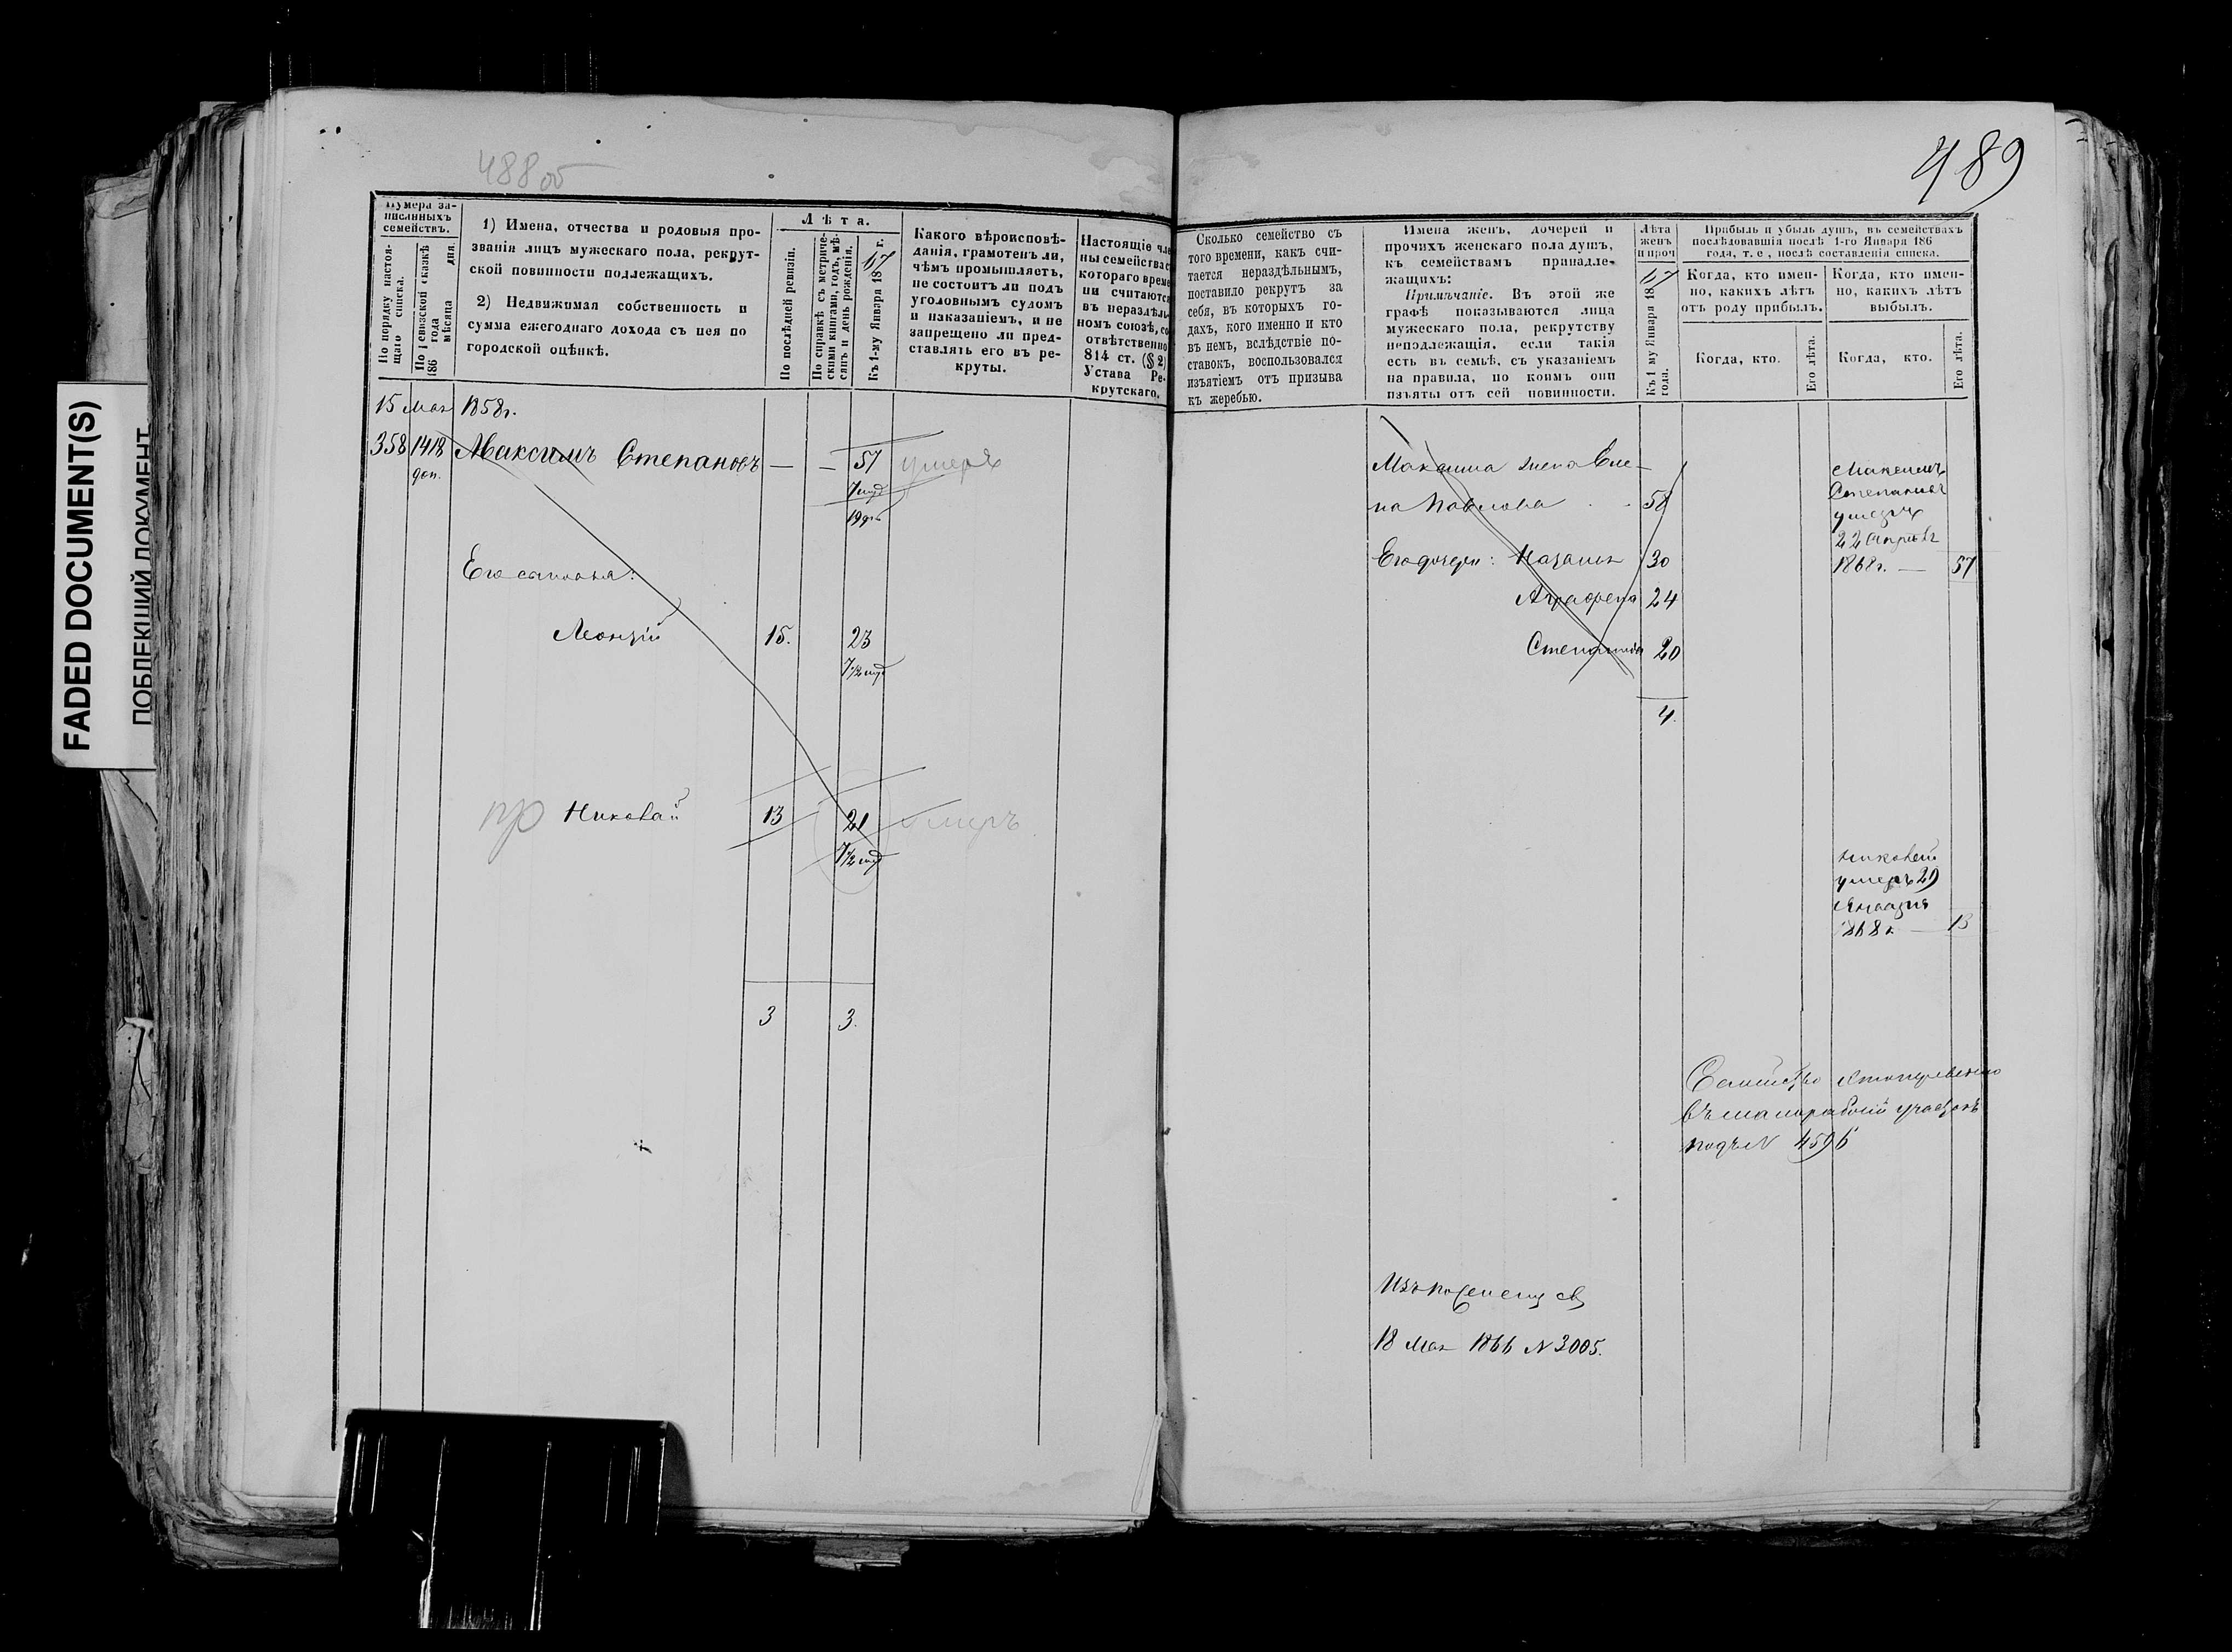 FADED DOCUMENT(S)
ПОБЛЕКШИЙ ДОКУМЕНТ
488 об
Нумера за-
писанныхъ
семействъ.
По порядку настоя-
щаго списка.
По ревизской сказкѣ
186 года
мѣсяца дня.
1) Имена, отчества и родовыя про-
званія лицъ мужескаго пола, рекрут-
ской повинности подлежащихъ.
2) Недвижимая собственность и
сумма ежегоднаго дохода съ нея по
городской оцѣнкѣ.
Лѣта.
По послѣдней ревизіи.
По справкѣ съ метриче-
скими книгами, годъ, мѣ-
сяцъ и день рожденія.
Къ 1-му Января 1867 г.
Какого вѣроисповѣ-
данія, грамотенъ ли,
чѣмъ промышляетъ,
не состоитъ ли подъ
уголовнымъ судомъ
и наказаніемъ, и не
запрещено ли пред-
ставлять его въ ре-
круты.
Настоящіе чле
ны семейства с
котораго време
ни считаются
въ нераздѣль-
номъ союзѣ, со
отвѣтственно
814 ст. (§ 2)
Устава Ре-
крутскаго.
15 Мая 1858 г.
358 1418 Максимъ Степановъ — — 57 умеръ
доп.
Его сыновья:
Леонтій 15. 23
7 1/2 мѣс
пр Николай 13 21 умеръ
7 1/2 мѣс
3 3.
489
Сколько семейство съ
того времени, какъ счи-
тается нераздѣльнымъ,
поставило рекрутъ за
себя, въ которыхъ го-
дахъ, кого именно и кто
въ немъ, вслѣдствіе по-
ставокъ, воспользовался
изъятіемъ отъ призыва
къ жеребью.
Имена женъ, дочерей и
прочихъ женскаго пола душъ,
къ семействамъ принадле-
жащихъ:
Примѣчаніе. Въ этой же
графѣ показываются лица
мужескаго пола, рекрутству
неподлежащія, если такія
есть въ семьѣ, съ указаніемъ
на правила, по коимъ они
изъяты отъ сей повинности.
Лѣта
женъ
и проч
Къ 1 му Января 1867
года.
Прибыль и убыль душъ, въ семействахъ
послѣдовавшія послѣ 1-го Января 186
года, т. е., послѣ составленія списка.
Когда, кто имен-
но, какихъ лѣтъ
отъ роду прибылъ.
Когда, кто имен-
но, какихъ лѣтъ
выбылъ.
Когда, кто.
Его лѣта.
Когда, кто.
Его лѣта.
Максима жена Еле-
на Павлова 58
Его дочери: 30
Аграфена 24
Степанида 20
4.
Максимъ
Степановъ
умеръ
22 Апрѣля
1868 г. — 57
Николай
умеръ 29
Января
1868 г. — 13
Семейство
участокъ
подъ N 4596
18 Мая 1866 N 3005.